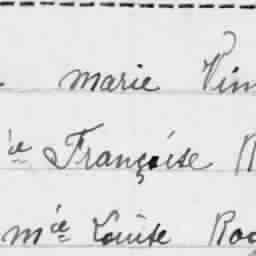 marie Vin
ie Françoise R
mie Louise Rog